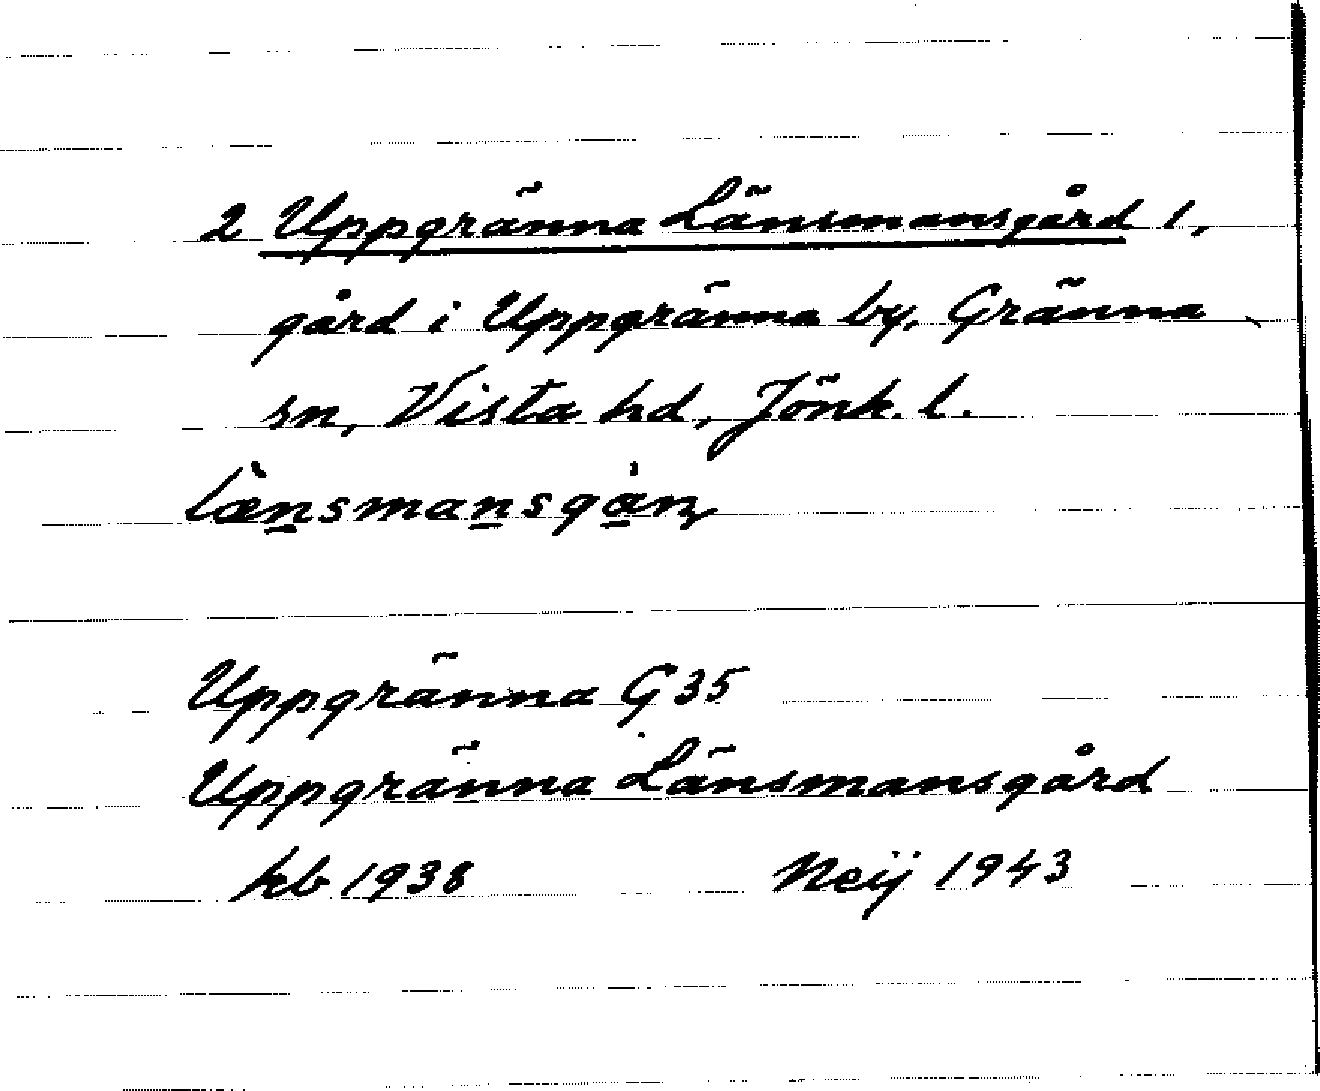 2 Uppgränna Länsmansgård 1,
gård i Uppgränna by, Gränna
sn, Vista hd, Jönk. l.
Uppgränna G 35
Uppgränna Länsmansgård
kb 1938 Neij 1943